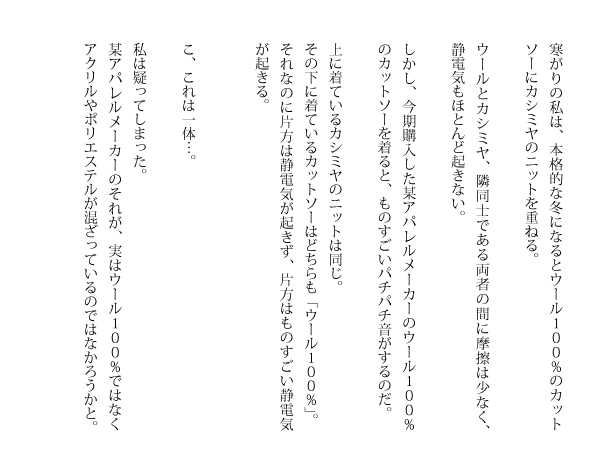 寒がりの私は、本格的な冬になるとウール１００％のカット
ソーにカシミヤのニットを重ねる。
ウールとカシミヤ、隣同士である両者の間に摩擦は少なく、
静電気もほとんど起きない。
しかし、今期購入した某アパレルメーカーのウール１００％
のカットソーを着ると、ものすごいパチパチ音がするのだ。
上に着ているカシミヤのニットは同じ。
その下に着ているカットソーはどちらも「ウール１００％」。
それなのに片方は静電気が起きず、片方はものすごい静電気
が起きる。
こ、これは一体…。
私は疑ってしまった。
某アパレルメーカーのそれが、実はウール１００％ではなく
アクリルやポリエステルが混ざっているのではなかろうかと。